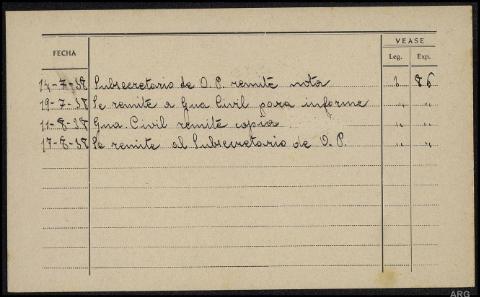 VEASE
FECHA Leg. Exp.
14-7-38 Subsecretario de O. P. remite nota 3 86
19-7-38 Se remite a Gua Civil para informe " "
11-8-38 Gua. Civil remite copia " "
17-8-38 Se remite al Subsecretario de O. P. " "
ARG